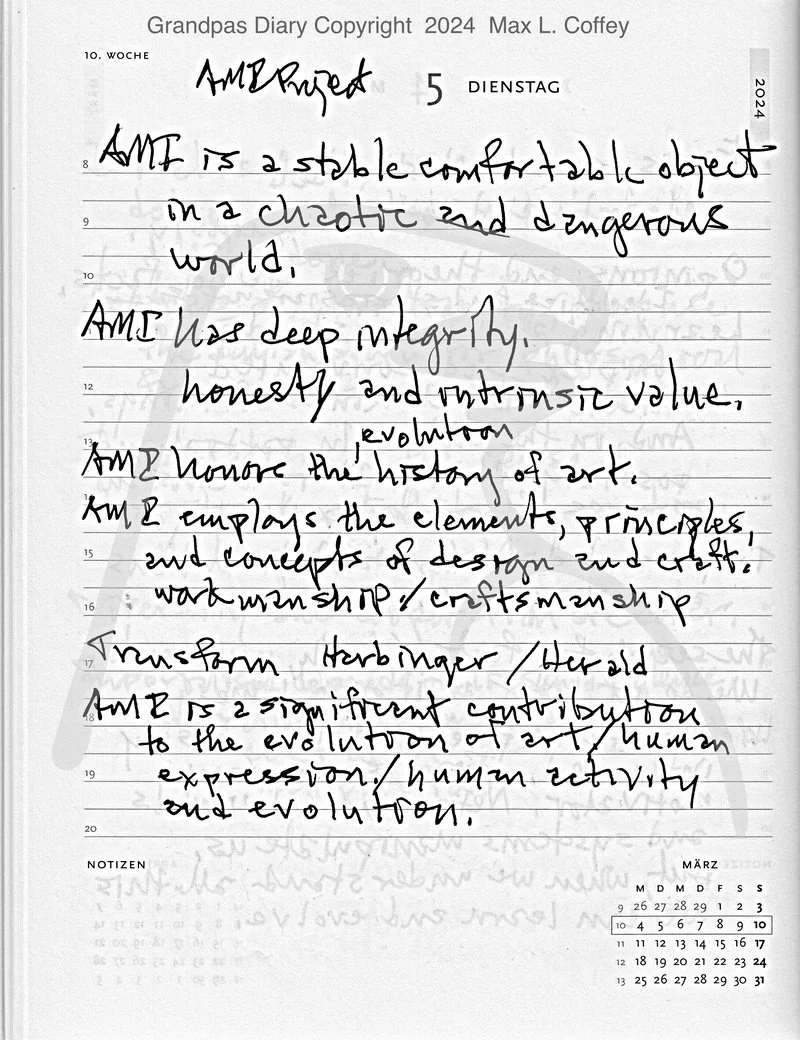 Grandpas Diary Copyright 2024 Max L. Coffey
10. WOCHE
AMI Project 5 DIENSTAG
2024
8 AMI is a stable comfortable object
9 in a chaotic and dangerous
10 world.
AMI has deep integrity.
12 honesty and intrinsic value.
13 evolution
AMI honors the history of art.
AMI employs the elements, principles,
15 and concepts of design and craft.
16 workmanship/craftsmanship
17 Transform Harbinger/Herald
18 AMI is a significant contribution
to the evolution of art/human
19 expression./human activity
and evolution.
20
NOTIZEN
MÄRZ
M D M D F S S
9 26 27 28 29 1 2 3
10 4 5 6 7 8 9 10
11 11 12 13 14 15 16 17
12 18 19 20 21 22 23 24
13 25 26 27 28 29 30 31